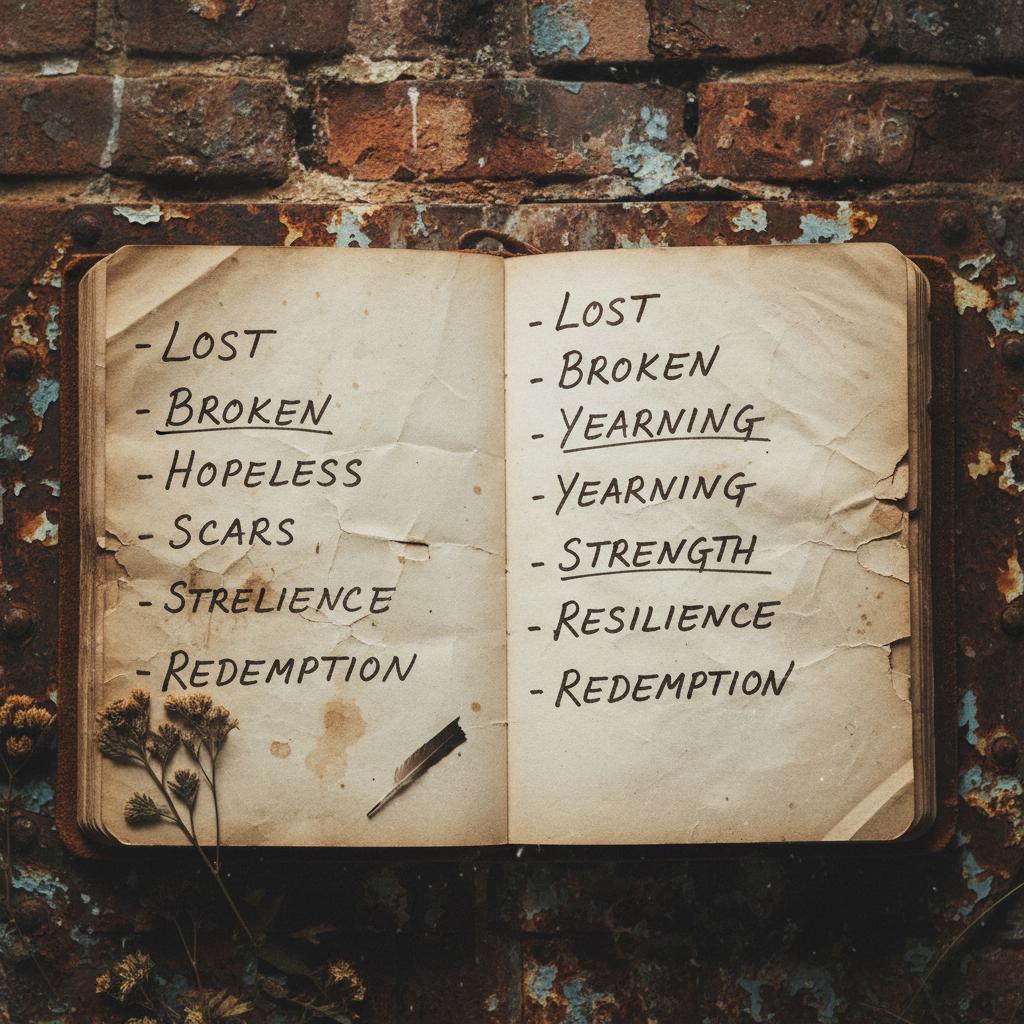 - LOST
- BROKEN
- HOPELESS
- SCARS
- STRELIENCE
- REDEMPTION
- LOST
- BROKEN
- YEARNING
- YEARNING
- STRENGTH
- RESILIENCE
- REDEMPTION